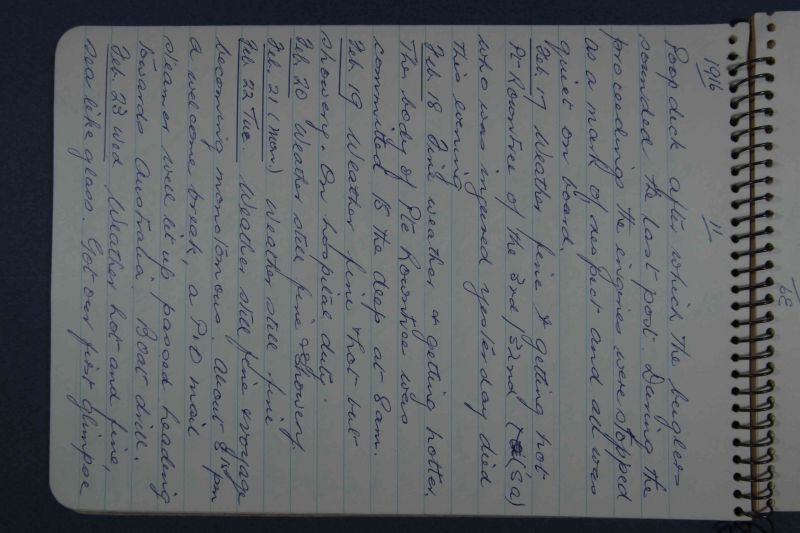 1916 11
Poop deck after which the buglers
sounded the last post. During the
proceedings the engines were stopped
as a mark of respect and all was
quiet on board.
Feb. 17 Weather fine & getting hot
Pt Rowntree of the 3rd/32nd (SA)
who was injured yesterday died
this evening
Feb 18 Fine weather & getting hotter.
The body of Pte Rowntree was
committed to the deep at 8am.
Feb 19 Weather fine & hot but
showery. On hospital duty.
Feb 20 Weather still fine & showery.
Feb. 21 (Mon.) Weather still fine
Feb 22 Tue. Weather still fine & voyage
becoming monotonous. About 8 pm
a welcome break, a P&O mail
steamer well lit up passed heading
towards Australia. Boat drill.
Feb. 23 Wed Weather hot and fine,
sea like glass. Got our first glimpse